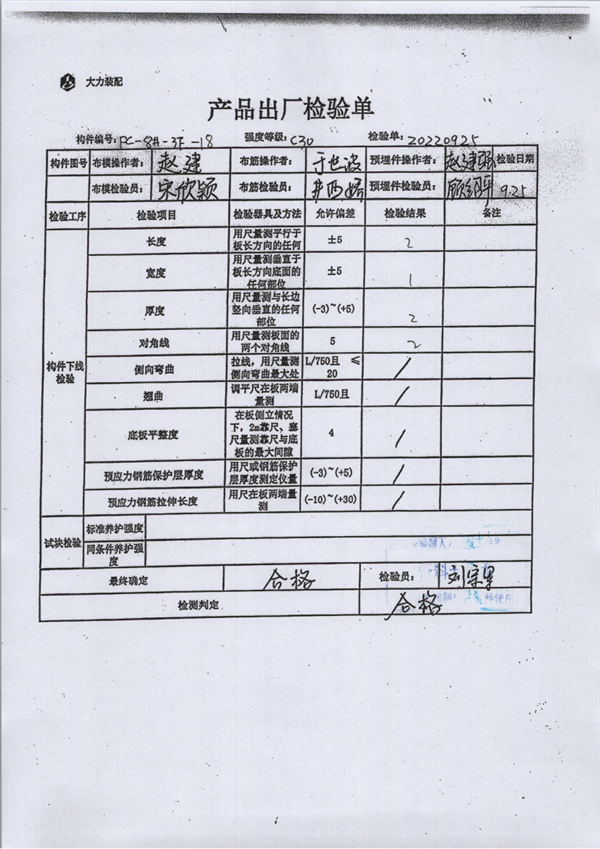 大力装配
产品出厂检验单
构件编号: PC-8#-3F-18 强度等级: C30 检验单: 20220925
构件图号 布模操作者: 赵建 布筋操作者: 于世波 预埋件操作者: 赵建强 检验日期
布模检验员: 宋欣颖 布筋检验员: 预埋件检验员: 9.25
检验工序 检验项目 检验器具及方法 允许偏差 检验结果 备注
构件下线检验
长度 用尺量测平行于板长方向的任何 ±5 2
宽度 用尺量测垂直于板长方向底面的任何部位 ±5 1
厚度 用尺量测与长边竖向垂直的任何部位 (-3)~(+5) 2
对角线 用尺量测板面的两个对角线 5 2
侧向弯曲 拉线,用尺量测侧向弯曲最大处 L/750且 ≤20 /
翘曲 调平尺在板两端量测 L/750且 /
底板平整度 在板侧立情况下,2m靠尺、塞尺量测靠尺与底板的最大间隙 4 /
预应力钢筋保护层厚度 用尺或钢筋保护层厚度测定仪量 (-3)~(+5) /
预应力钢筋拉伸长度 用尺在板两端量测 (-10)~(+30) /
试块检验 标准养护强度
同条件养护强度
最终确定 合格 检验员:
检测判定 合格